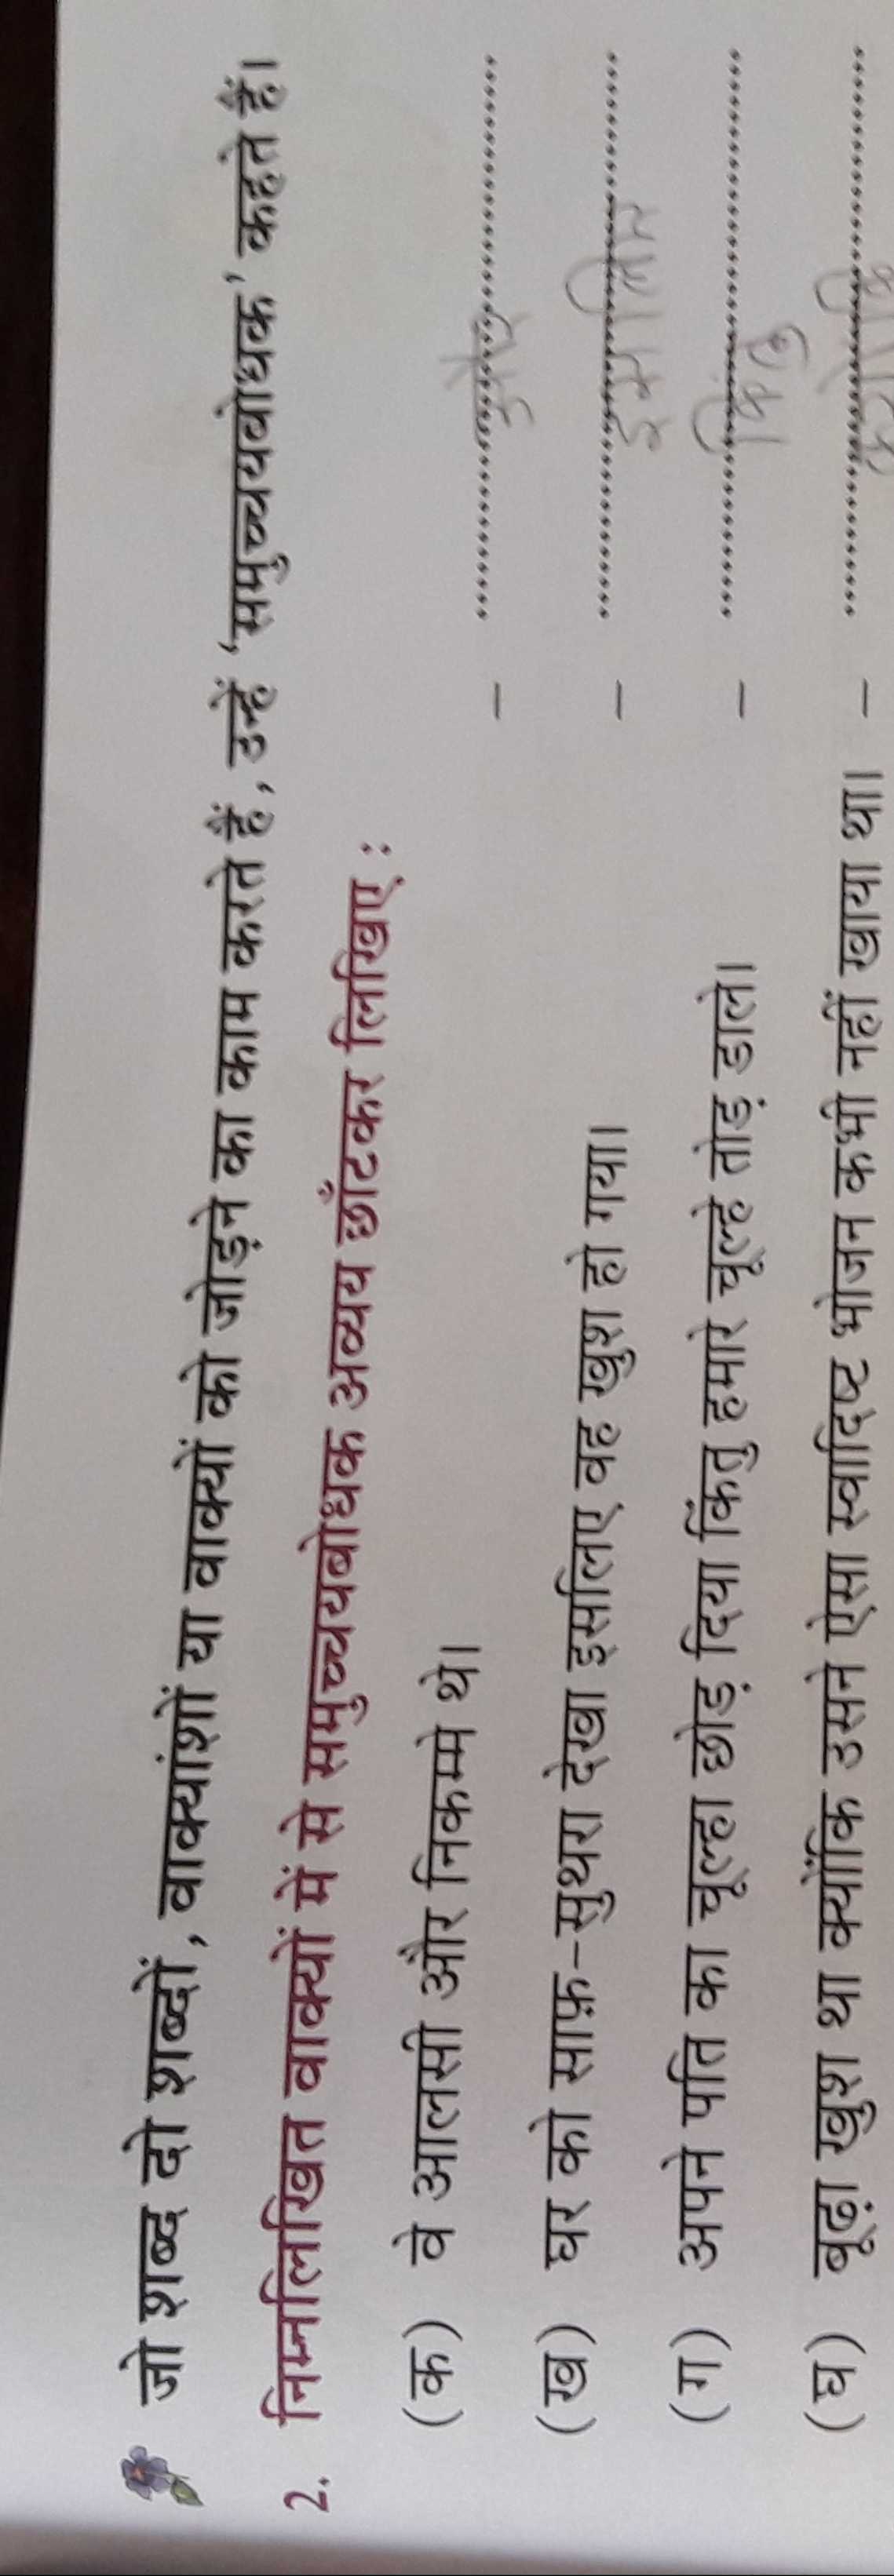 जो शब्द दो शब्दों, वाक्यांशों या वाक्यों को जोड़ने का काम करते हैं, उन्हें 'समुच्चयबोधक' कहते हैं।
2. निम्नलिखित वाक्यों में से समुच्चयबोधक अव्यय छाँटकर लिखिए :
(क) वे आलसी और निकम्मे थे। – और
(ख) घर को साफ़-सुथरा देखा इसलिए वह खुश हो गया। –
(ग) अपने पति का चूल्हा छोड़ दिया किंतु हमारे चूल्हे तोड़ डाले। – किंतु
(घ) बूढ़ा खुश था क्योंकि उसने ऐसा स्वादिष्ट भोजन कभी नहीं खाया था। –